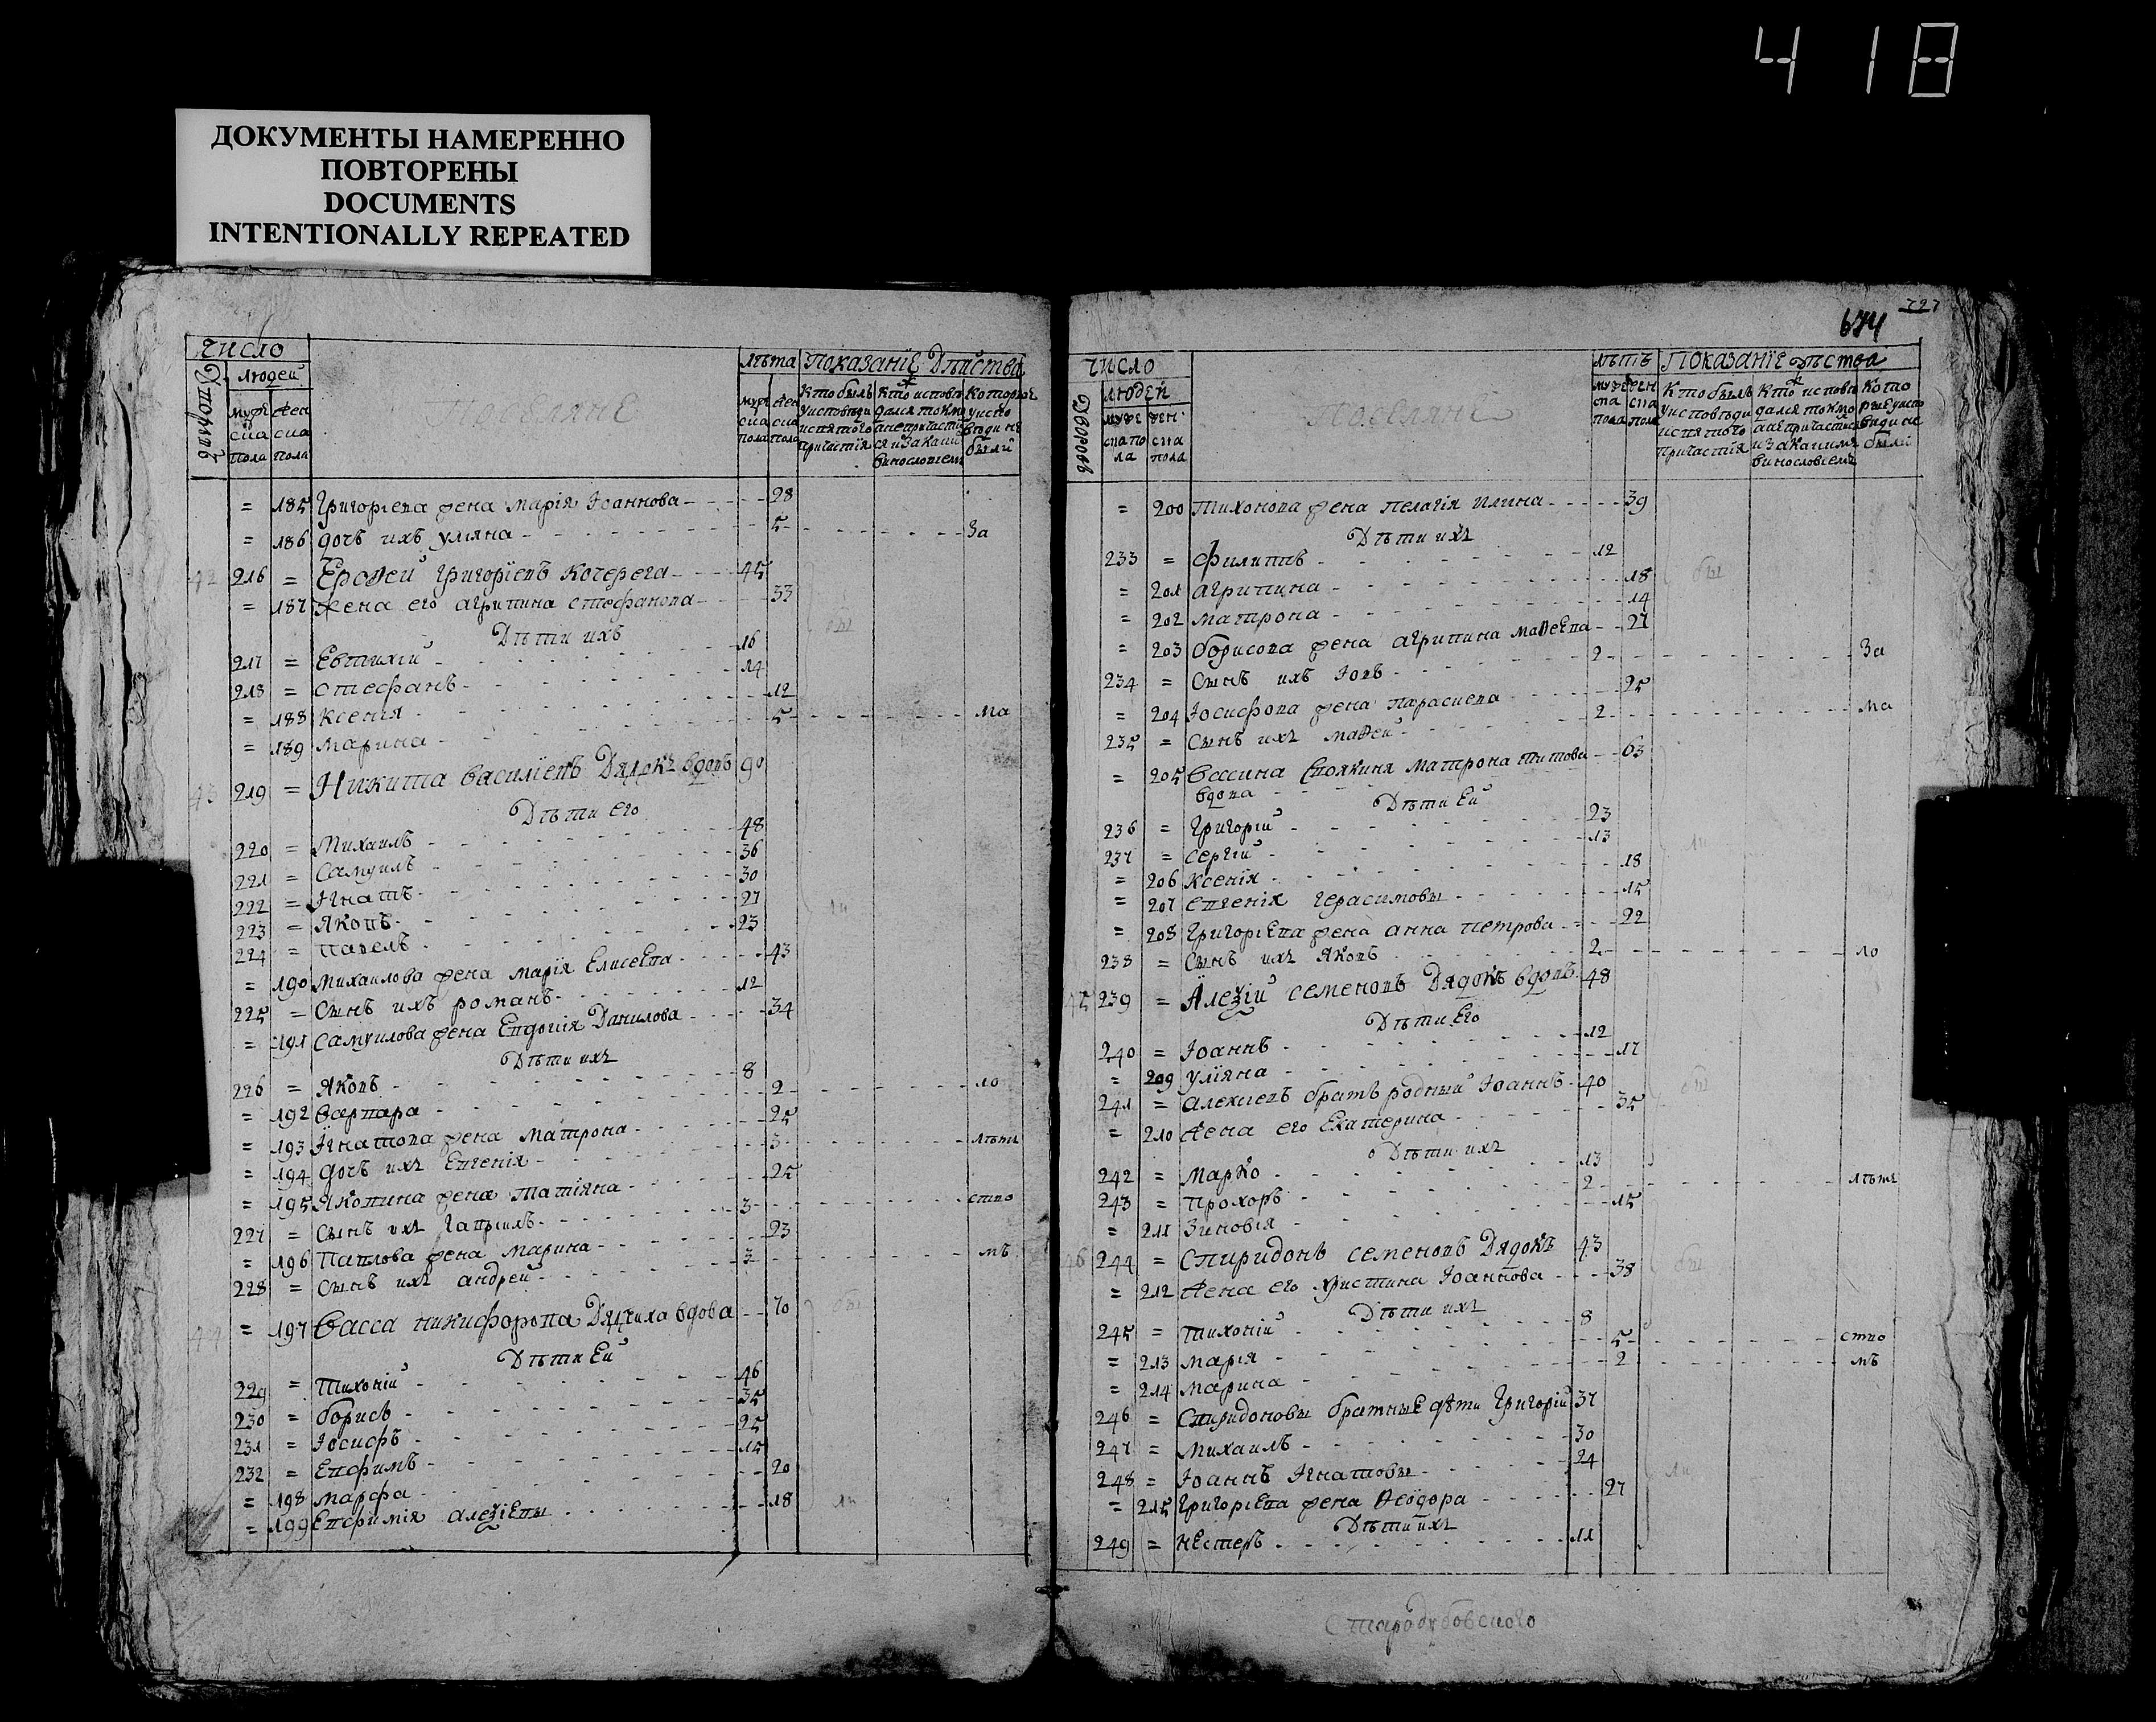 418
ДОКУМЕНТЫ НАМЕРЕННО
ПОВТОРЕНЫ
DOCUMENTS
INTENTIONALLY REPEATED
Число
Людей
муже ска пола
жен ска пола
Поселяне
Лѣта
Показанїе Дѣйства
Кто былъ у исповѣди и святаго причастїя
= 185 Григорїева жена Марїя Іоаннова 28
= 186 дочь ихъ Улїяна 5 За
42 216 = Ерофей Григорїевъ Кочерега 45
= 187 Жена его Агрипина Стефанова 33
Дѣти ихъ
217 = Евтихїй 16
218 = Стефанъ 14
= 188 Ксенїя 12
= 189 Марина 5 ма
43 219 = Никита Василїевъ Дядокъ вдовъ 90
Дѣти его
220 = Михаилъ 48
221 = Самуилъ 36
222 = Игнатъ 30
223 = Яковъ 27
224 = Павелъ 23
= 190 Михаилова жена Марїя Елисеева 43
225 = Сынъ ихъ Романъ 12
= 191 Самуилова жена Евдокїя Данилова 34
Дѣти ихъ
226 = Яковъ 8
= 192 Варвара 2 ло
= 193 Игнатова жена Матрона 25
= 194 Дочь ихъ Евгенїя 3 лѣт
= 195 Яковина жена Татїяна 25
227 = Сынъ ихъ Гаврїилъ 3 ство
= 196 Павлова жена Марина 23
228 = Сынъ ихъ Андрей 3 мъ
44 = 197 Васса Никифорова Дядчиха вдова 70
Дѣти Ей
229 = Тихонїй 46
230 = Борисъ 35
231 = Іосифъ 25
232 = Евфимъ 15
= 198 Марфа 20
= 199 Евфимїя Алезїевы 18
674
727
Число
Людей
Дворовъ
Поселяне
Лѣтъ
Показанїе дѣства
= 200 Тихонова жена Пелагїя Илина 39
Дѣти ихъ
233 = Филиппъ 12
= 201 Агрипина 18
= 202 Матрона 14
= 203 Борисова жена Агрипина Мафеева 27
234 = Сынъ ихъ Іовъ 2 За
= 204 Іосифова жена Параскева 25
235 = Сынъ ихъ Мафей 2 ма
= 205 Вассина Матрона Титова 63
вдова
Дѣти Ей
236 = Григорїй 23
237 = Сергїй 13
= 206 Ксенїя 18
= 207 Евгенїя Герасимовы 15
= 208 Григорїева жена Анна Петрова 22
238 = Сынъ ихъ Яковъ 2 ло
45 239 = Алезїй Семеновъ Дядокъ вдовъ 48
Дѣти Его
240 = Іоаннъ 12
= 209 Улїяна 17
241 = Алексїевъ братъ родный Іоаннъ 40
= 210 Жена его Екатерина 35
Дѣти ихъ
242 = Марко 13
243 = Прохоръ 2 лѣт
= 211 Зиновїя 15
46 244 = Спиридонъ Семеновъ Дядокъ 43
= 212 Жена его Христина Іоаннова 38
Дѣти ихъ
245 = Тихонїй 8
= 213 Марїя 5 ство
= 214 Марина 2 мъ
246 = Спиридоновы братные дѣти Григорїй 37
247 = Михаилъ 30
248 = Іоаннъ Игнатовы 24
= 215 Григорїева жена Феодора 27
Дѣти ихъ
249 = Нестеръ 11
Стародубовского